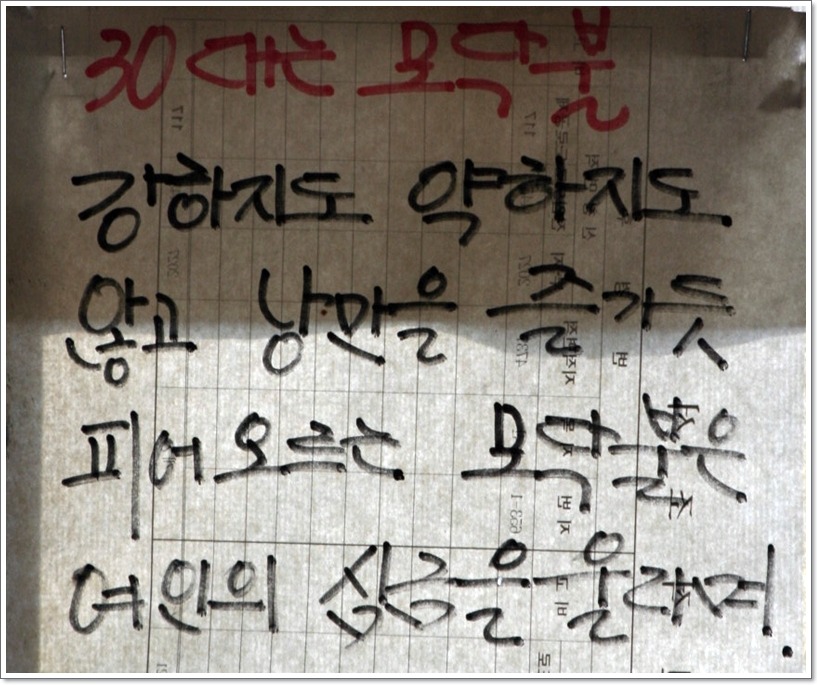 30대는 모닥불
강하지도 약하지도
않고 낭만을 즐기듯
피어오르는 모닥불은
여인의 심금을 울리며.